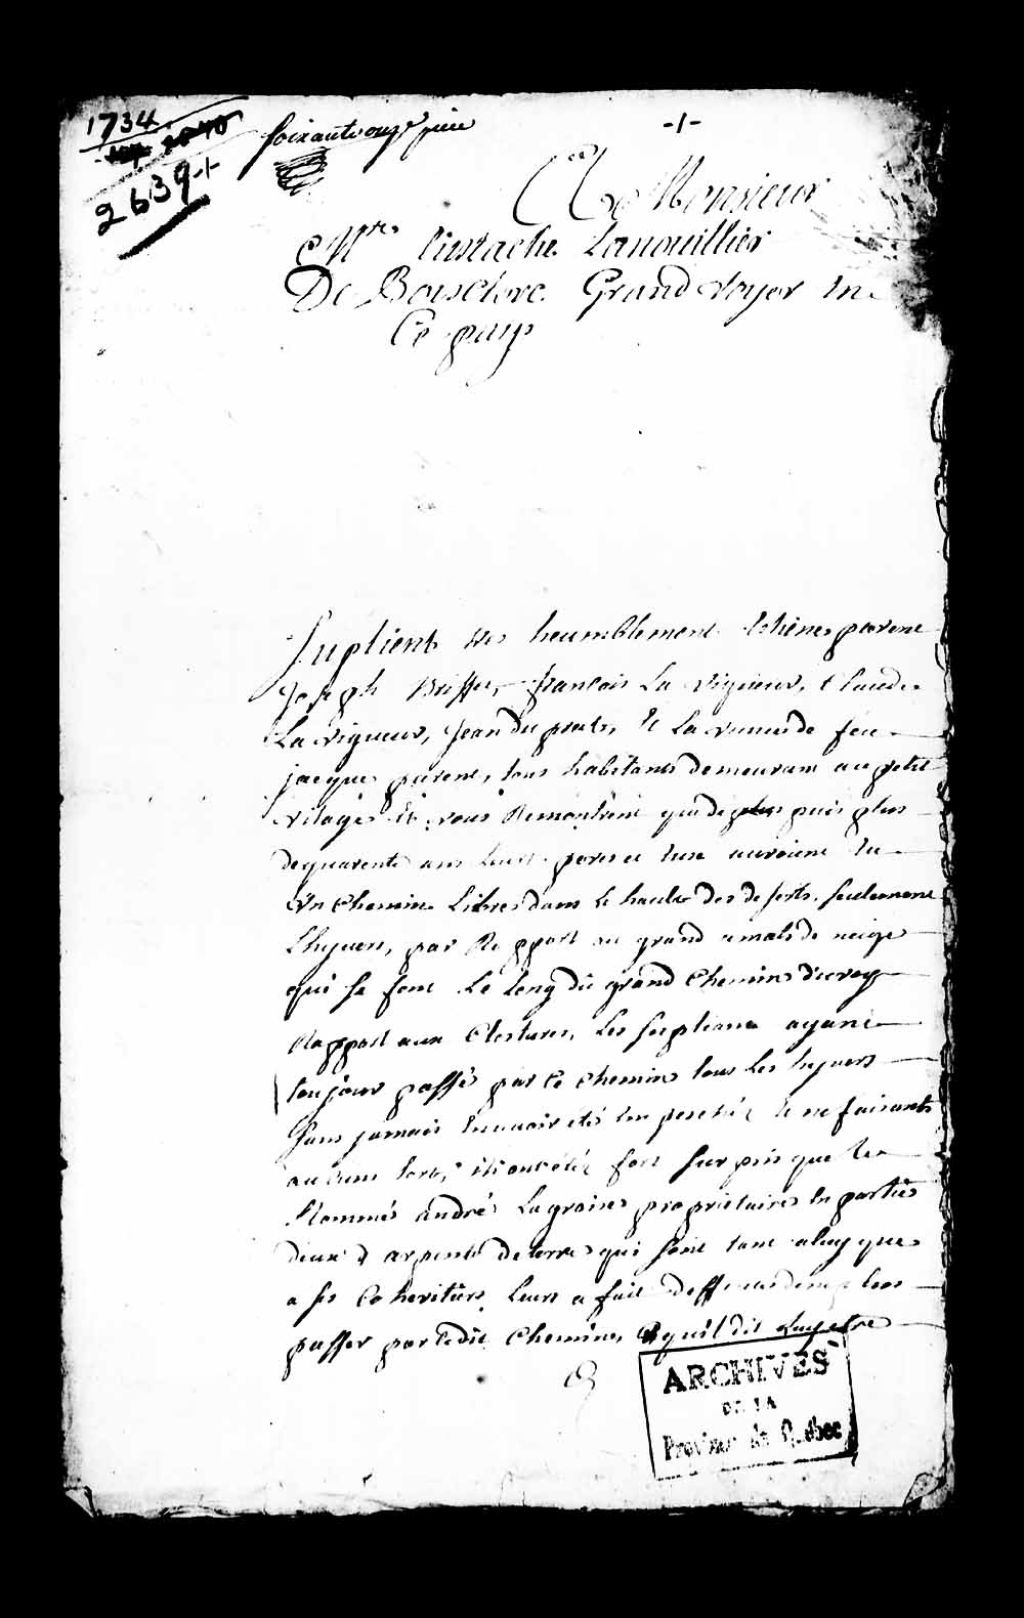 1734
2639
Soixante onze pièce
-1-
A Monsieur
Mre Eustache Lanouillier
De Boisclere Grand voyer en
Ce pays
Suplient tres heumblement Estienes parent
Joseph Brisset, francois La vigueur, Claude
La vigueur, Jean du prats, Et La veuve de feu
jacques parent, tous habitants demeurant au petit
vilages Et vous Remontrent que depuis plus
dequarente ans Leurs peres et Eux auroient Eu
Un Chemin Libres dans Le haut des deserts, seulement
Lhyvert, par Rapport au grand amats de neige
qui se font Le Long du grand Chemin du roy
Rapport aux Clotures, Les supliants ayant
toujour passés par Ce Chemin tous Les hyverts
sans jamais En avoir étés Empesché Et ne faisants
aucuns torts, ils ont étéz fort surpris que Le
Nommés andré Lagroix propriétaires En parties
deux arpents de terres qui sont tant aluy que
a ses Coheritiers Leurs a fait deffences de plus
passer par Ledit Chemin, quil dit Luy etre
ARCHIVES
DE LA
Province de Québec